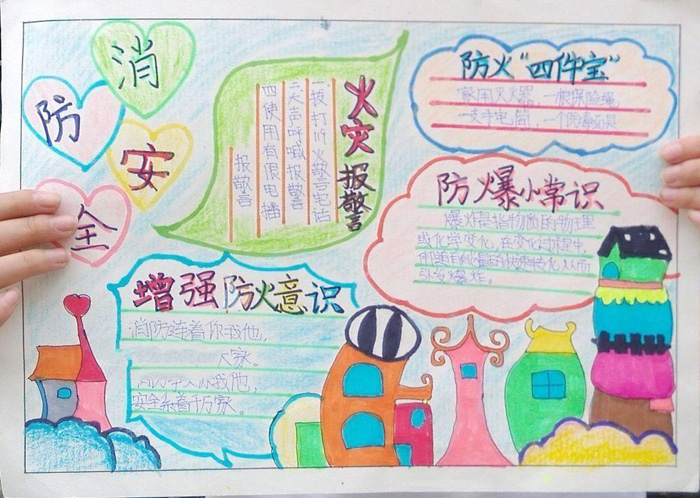 消
防
安
全
火灾报警
一拨打119火警电话
二大声呼喊报警
四使用有限电播
报警言
防火“四件宝”
家用灭火器，一根保险绳
一支手电筒，一个防毒面具
防爆小常识
爆炸是指物质的物理
或化学变化，在变化过程中，
引发爆炸。
增强防火意识
消防连着你我他，
大家。
安全系着千万家。